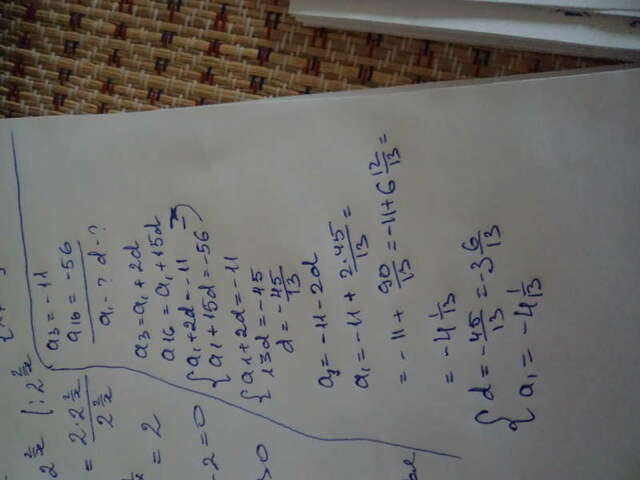 a₃ = -11
a₁₆ = -56
a₁ - ? d - ?
a₃ = a₁ + 2d
a₁₆ = a₁ + 15d
{ a₁ + 2d = -11
{ a₁ + 15d = -56
{ a₁ + 2d = -11
{ 13d = -45
d = -45/13
a₃ = -11 - 2d
a₁ = -11 + 2·45/13 =
= -11 + 90/13 = -11 + 6 12/13 =
= -4 1/13
{ d = -45/13 = -3 6/13
{ a₁ = -4 1/13
= 2
-2 = 0
>0